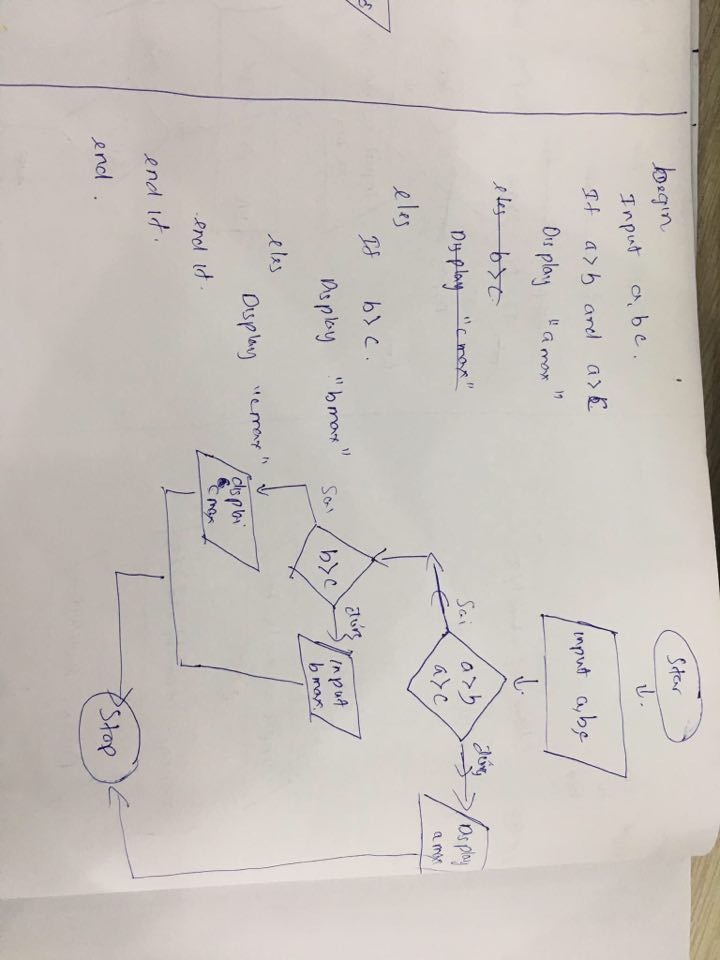 Begin
Input a, b c.
If a>b and a>c
Display "a max"
eles b>c
Display "c max"
eles
If b>c.
Display "b max"
eles
Display "c max"
end if.
end if.
end.
Star
input a, b, c
a>b
a>c
đúng
Display
a max
Sai
b>c
đúng
input
b max
Sai
displai
c max
Stop